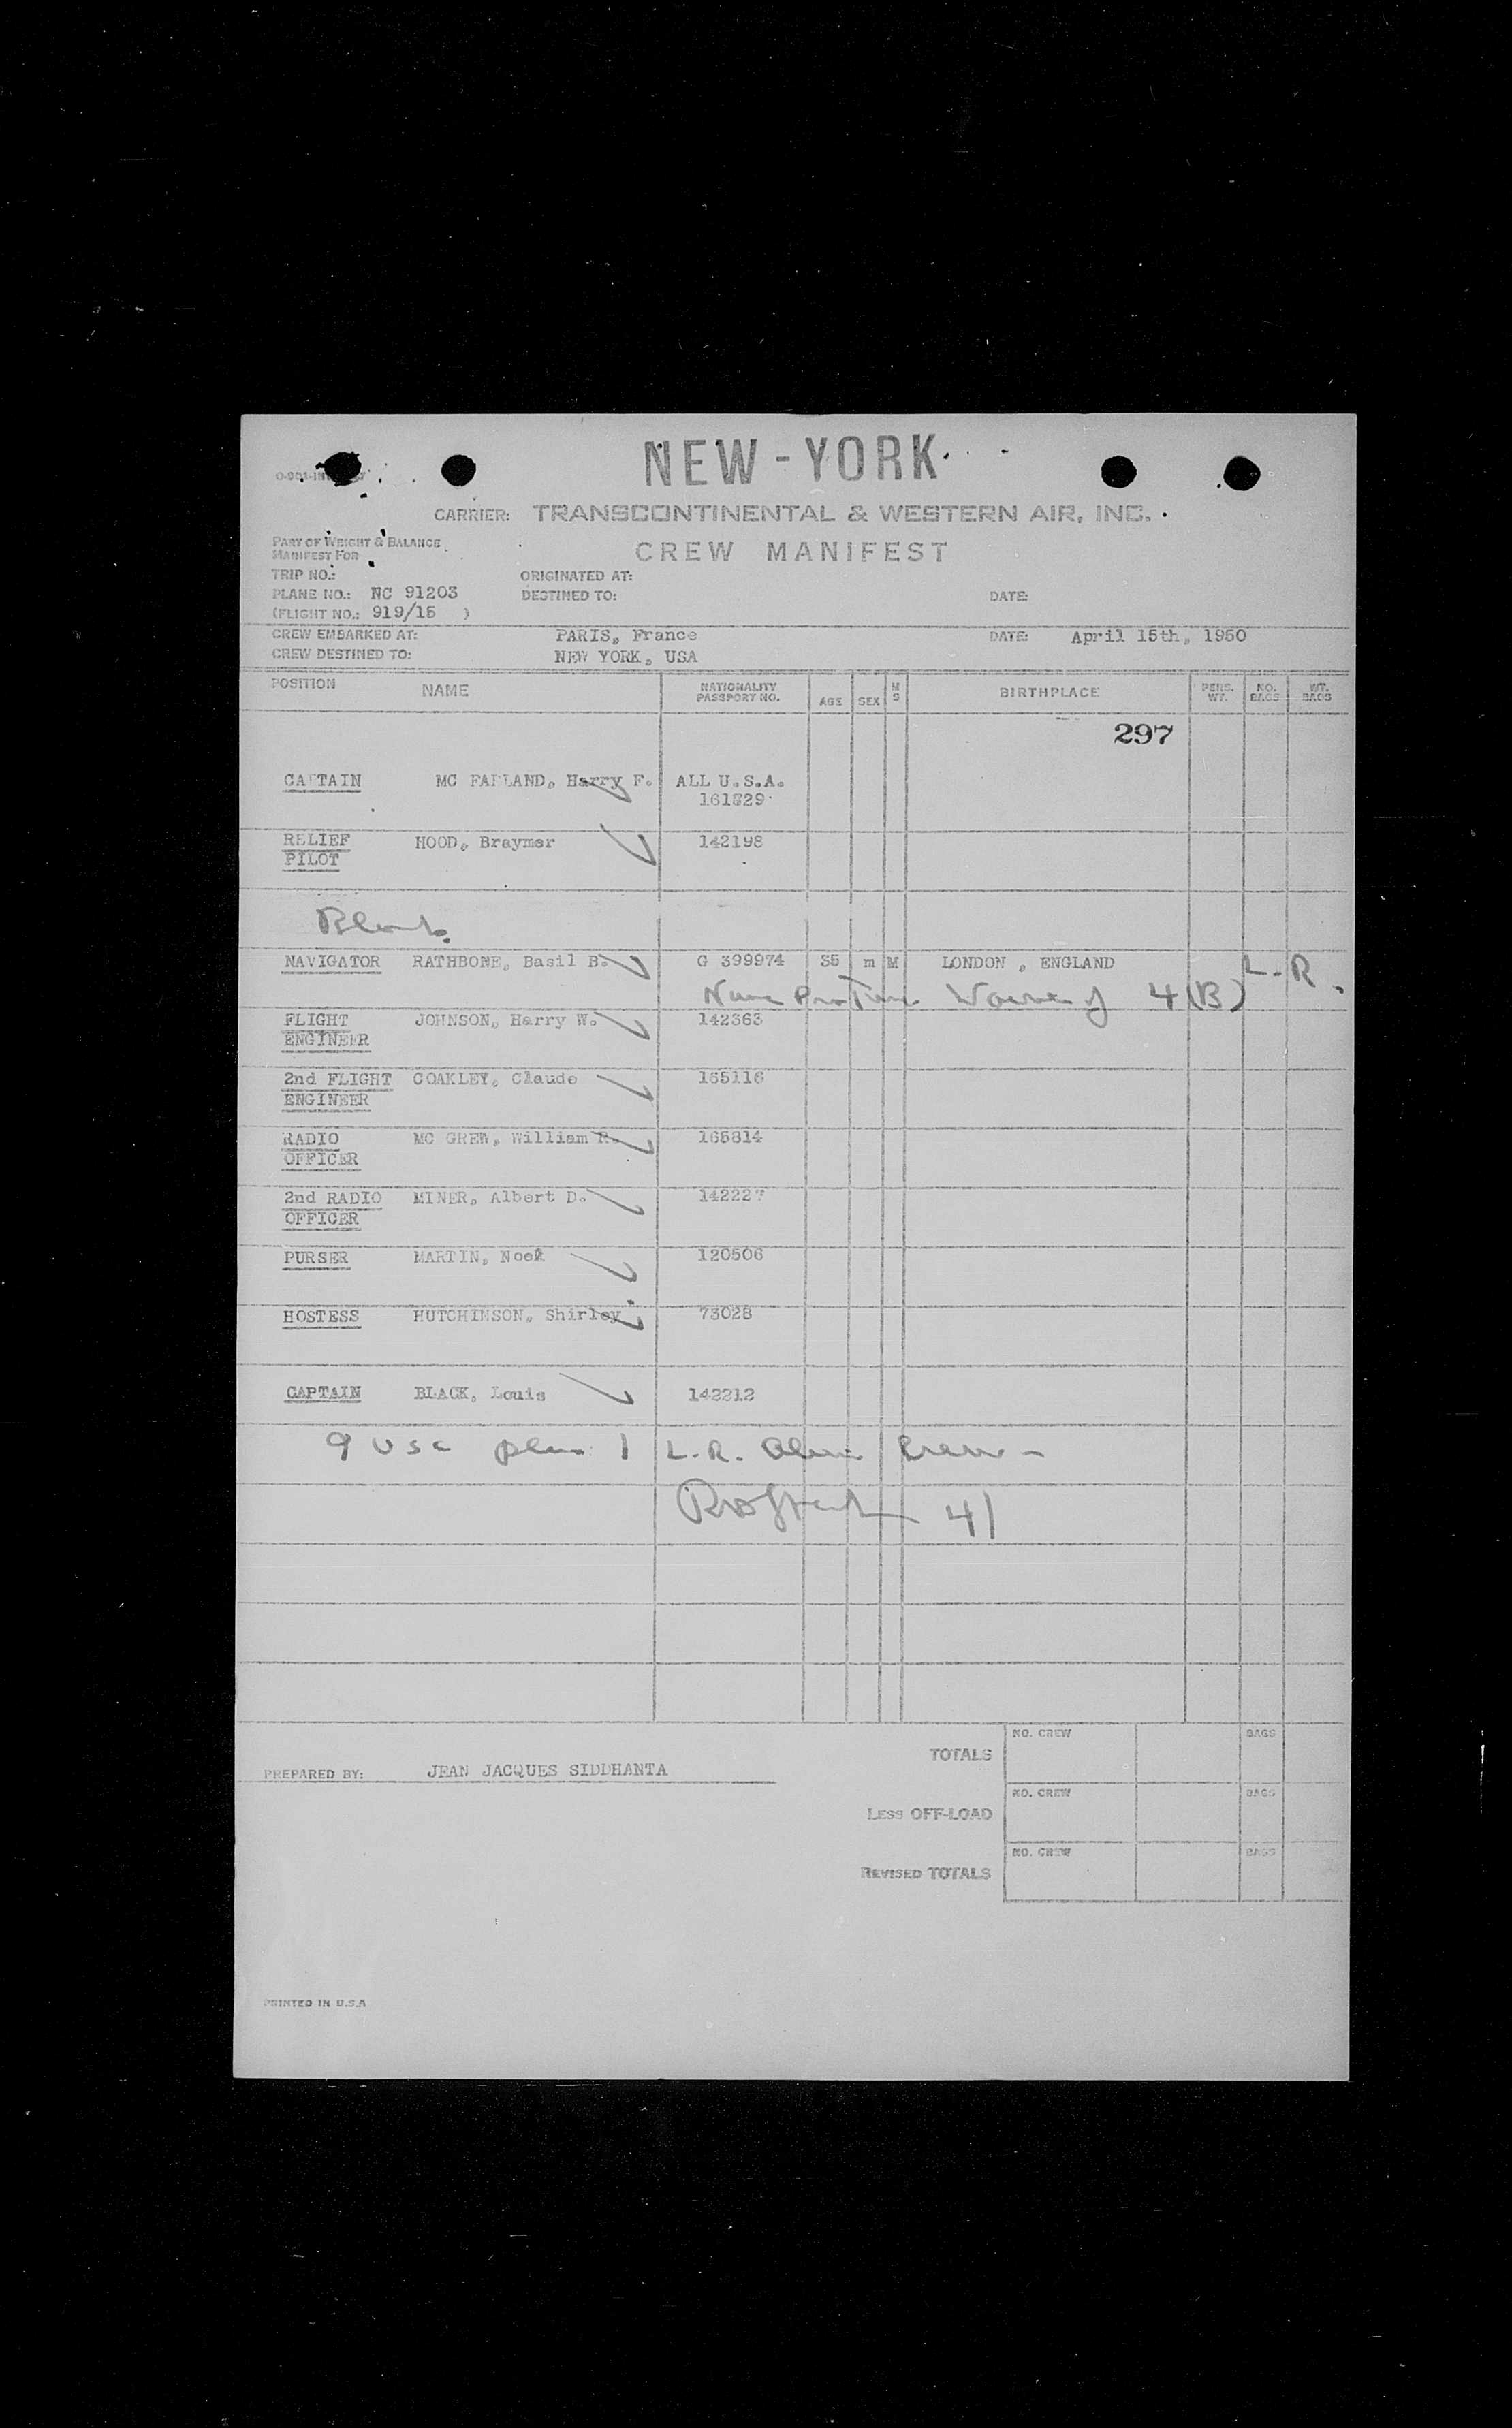 NEW-YORK
CARRIER: TRANSCONTINENTAL & WESTERN AIR, INC.
PART OF WEIGHT & BALANCE
MANIFEST FOR
CREW MANIFEST
TRIP NO.: ORIGINATED AT:
PLANE NO.: NC 91203 DESTINED TO: DATE:
(FLIGHT NO.: 919/15 )
CREW EMBARKED AT: PARIS, France DATE: April 15th, 1950
CREW DESTINED TO: NEW YORK, USA
POSITION NAME NATIONALITY PASSPORT NO. AGE SEX M S BIRTHPLACE PERS. WT. NO. BAGS WT. BAGS
297
CAPTAIN MC FARLAND, Harry F. ALL U.S.A.
RELIEF PILOT HOOD, Braymer 142198
Blank
NAVIGATOR RATHBONE, Basil B. G 399974 35 m M LONDON , ENGLAND L.R.
4(B)
FLIGHT ENGINEER JOHNSON, Harry W. 142363
2nd FLIGHT ENGINEER COAKLEY, Claude 165116
RADIO OFFICER MC GREW, William R. 165814
2nd RADIO OFFICER MINER, Albert D. 142227
PURSER MARTIN, Noel 120506
HOSTESS HUTCHINSON, Shirley 73028
CAPTAIN BLACK, Louis 142212
9 USC plus 1 L.R. Alien Crew -
41
TOTALS NO. CREW BAGS
PREPARED BY: JEAN JACQUES SIDDHANTA
LESS OFF-LOAD NO. CREW BAGS
REVISED TOTALS NO. CREW BAGS
PRINTED IN U.S.A